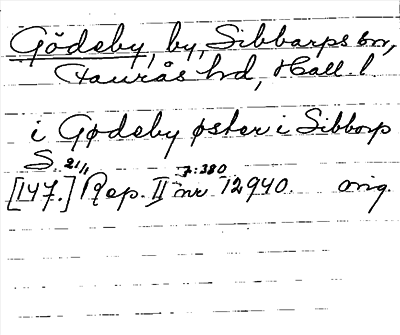 Gödeby, by, Sibbarps sn,
Faurås hd, Hall. l.
i Gødeby øster i Sibborp
S. 21/1 7:380
[147.] Rep. II nr 12940. orig.